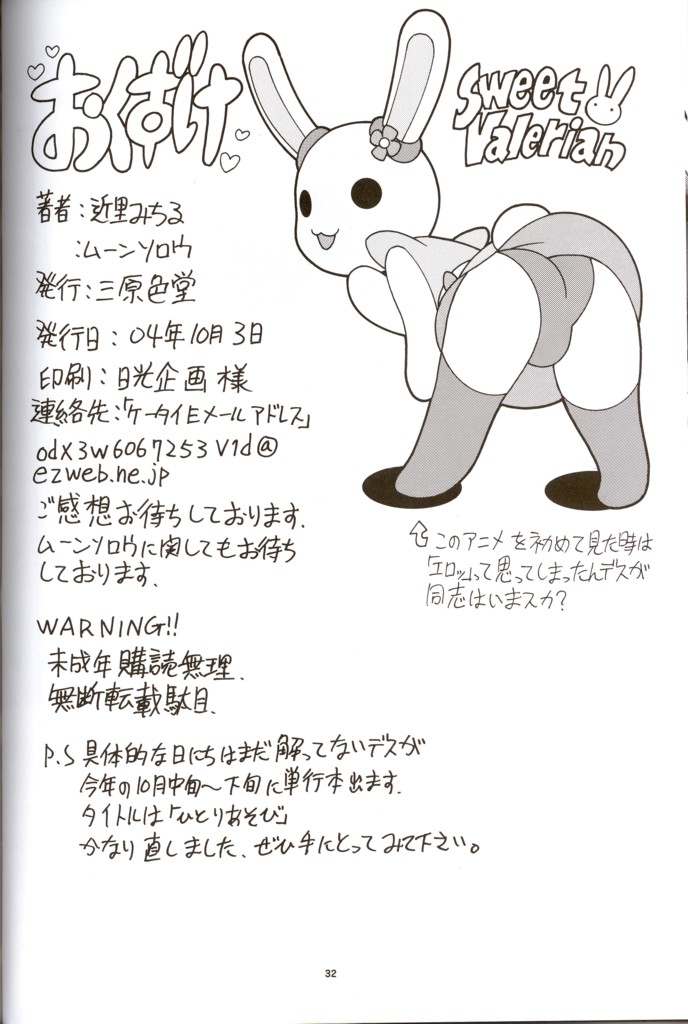 おくづけ
Sweet
Valerian
著者：近里みちる
：ムーンソロウ
発行：三原色堂
発行日：04年10月3日
印刷：日光企画 様
連絡先：「ケータイEメールアドレス」
odx3w6067253v1d@
ezweb.ne.jp
ご感想お待ちしております.
ムーンソロウに関してもお待ち
しております.
⇧このアニメを初めて見た時は
「エロッ」って思ってしまったんデスが
同志はいまスカ?
WARNING!!
未成年購読無理.
無断転載駄目.
P.S 具体的な日にちはまだ解ってないデスが
今年の10月中旬〜下旬に単行本出ます.
タイトルは「ひとりあそび」
かなり直しました、ぜひ手にとってみて下さい。
32